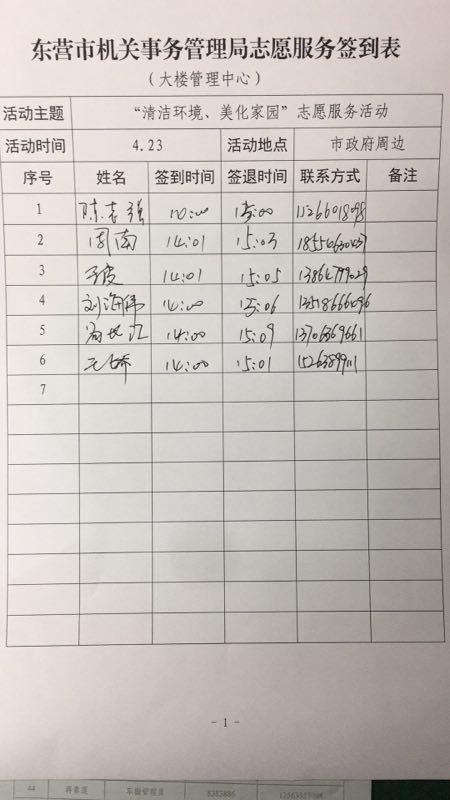 东营市机关事务管理局志愿服务签到表
（大楼管理中心）
活动主题 “清洁环境、美化家园”志愿服务活动
活动时间 4.23 活动地点 市政府周边
序号 姓名 签到时间 签退时间 联系方式 备注
1 陈志强 15:00
2 周南 14:01 15:03
3 14:01 15:05
4 刘海伟 14:00 15:06
5 14:00 15:09 13706369661
6 14:00 15:01 15263899111
7
- 1 -
44 东微管理员 8383886